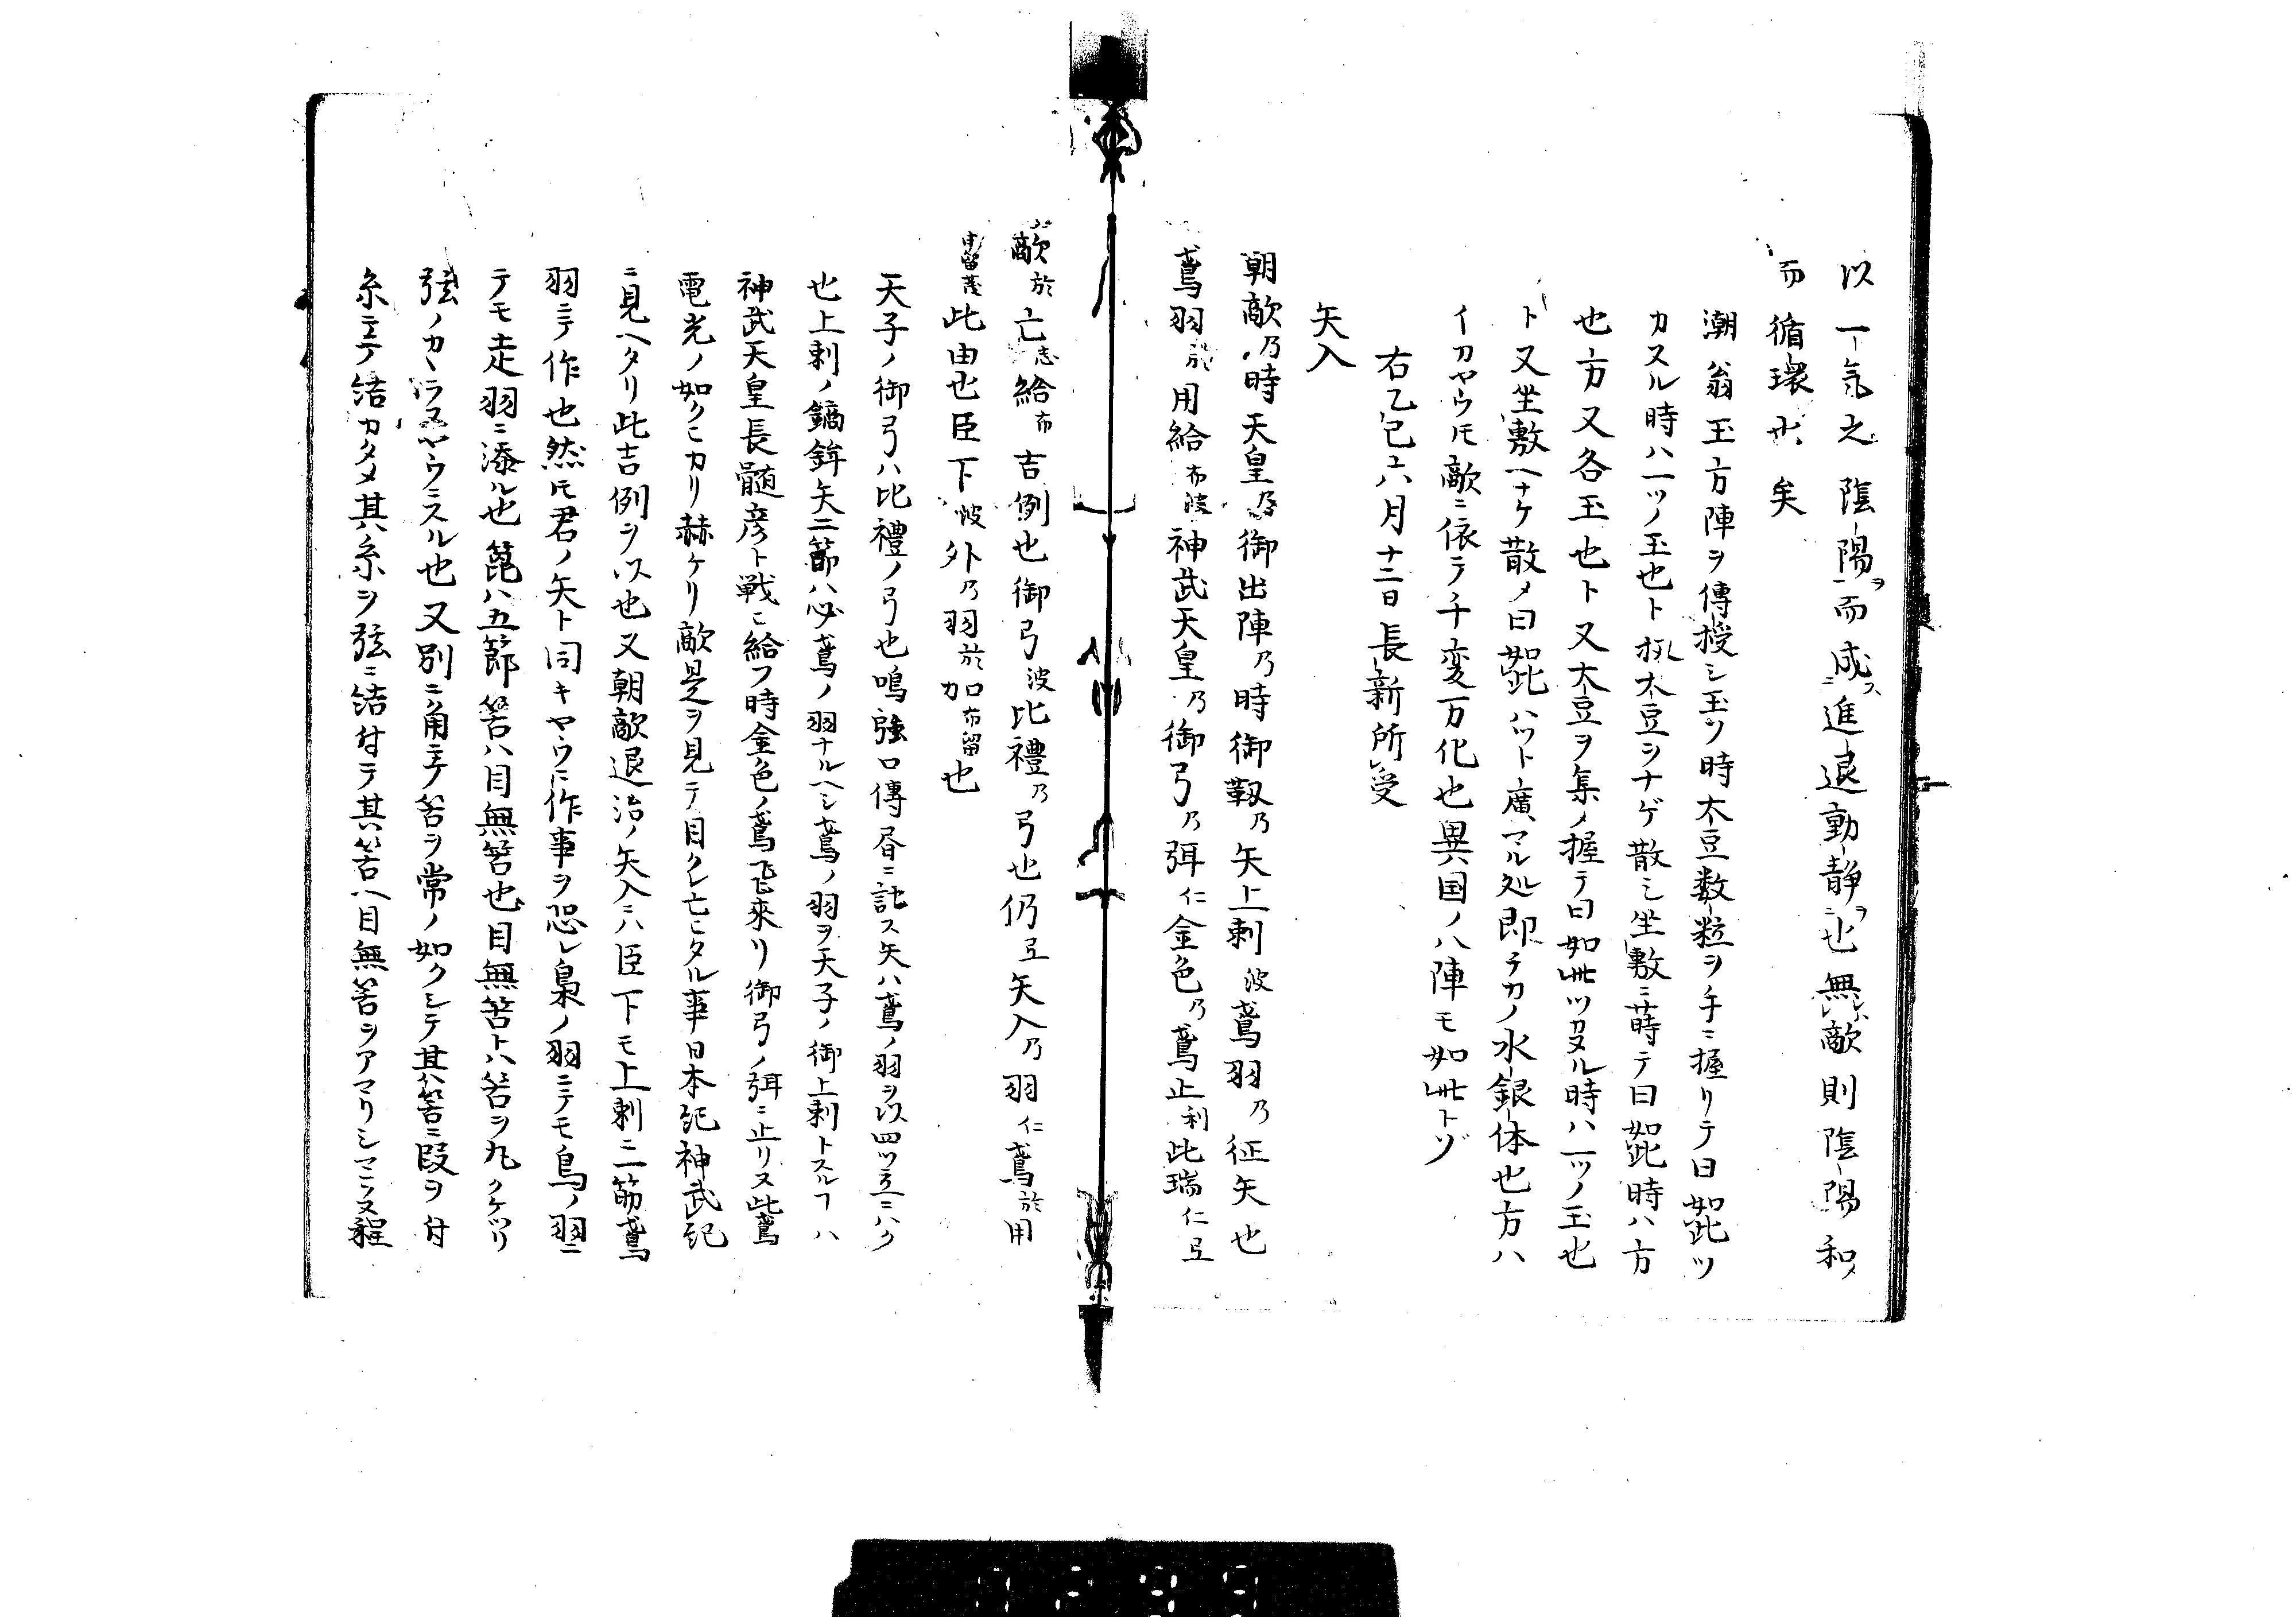 以一気之陰陽ヲ而成ス進退動静ヲ也無敵則陰陽和メ
而循環也矣
潮翁玉方陣ヲ傳授シ玉ツ時大豆数粒ヲ手ニ握リテ曰如此ツ
カヌル時ハ一ツノ玉也ト扨大豆ヲナゲ散シ坐敷ニ蒔テ曰如此時ハ方
也方又各玉也ト又大豆ヲ集メ握テ曰如此ツカヌル時ハ一ツノ玉也
ト又坐敷ヘナケ散メ曰如此ハツト廣マル処即チカノ水銀体也方ハ
イカヤウモ敵ニ依テ千変万化也異国ノ八陣モ如此トゾ
右乙巳六月十二日長新所受
矢入
朝敵乃時天皇乃御出陣乃時御靫乃矢上刺波鳶羽乃征矢也
鳶羽於用給布波神武天皇乃御弓乃弭仁金色乃鳶止利此瑞仁弖
敵於亡志給布吉例也御弓波比禮乃弓也仍弖矢入乃羽仁鳶於用
留茂此由也臣下波外乃羽於加布留也
天子ノ御弓ハ比禮ノ弓也鳴強口傳昼ニ記ス矢ハ鳶ノ羽ヲ以四ツ立ニハク
也上刺ノ鏑鉾矢二節ハ必鳶ノ羽ナルヘシ鳶ノ羽ヲ天子ノ御上刺トスルフハ
神武天皇長髄彦ト戦ヒ給フ時金色ノ鳶飛来リ御弓ノ弭ニ止リ又此鳶
電光ノ如クヒカリ赫ケリ敵是ヲ見テ目クレ亡ヒタル事日本紀神武紀
ニ見ヘタリ此吉例ヲ以也又朝敵退治ノ矢入ニハ臣下モ上刺二筋鳶
羽ニテ作也然モ君ノ矢ト同キヤウニ作事ヲ恐レ梟ノ羽ニテモ鳥ノ羽ニ
テモ走羽ニ添ル也箆ハ五節筈ハ目無筈也目無筈トハ筈ヲ丸クケツリ
弦ノカヽラヌヤウニスル也又別ニ角ニテ筈ヲ常ノ如クシテ其筈ニ段ヲ付
糸ニテ結カタメ其糸ヲ弦ニ結付テ其筈ハ目無筈ヲアマリシマラヌ程